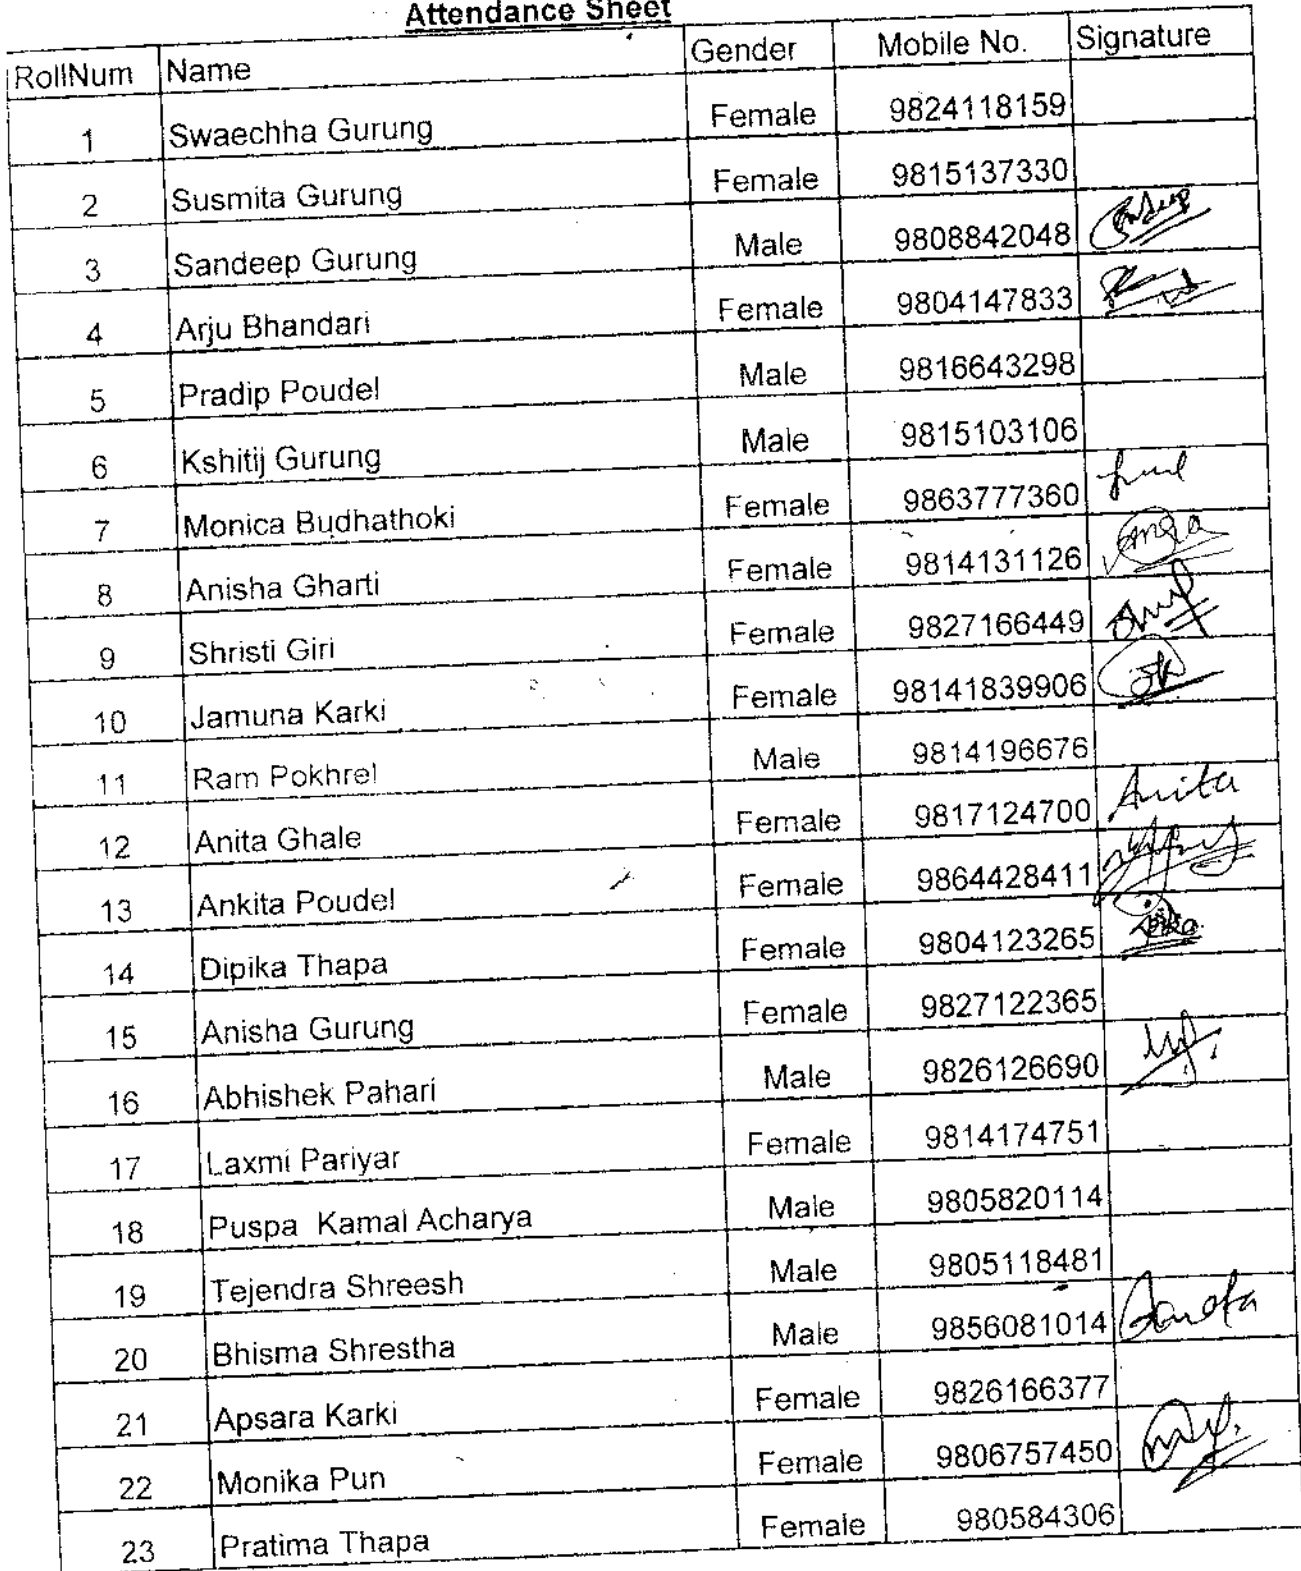 Attendance Sheet
RollNum Name Gender Mobile No. Signature
1 Swaechha Gurung Female 9824118159
2 Susmita Gurung Female 9815137330
3 Sandeep Gurung Male 9808842048
4 Arju Bhandari Female 9804147833
5 Pradip Poudel Male 9816643298
6 Kshitij Gurung Male 9815103106
7 Monica Budhathoki Female 9863777360
8 Anisha Gharti Female 9814131126
9 Shristi Giri Female 9827166449
10 Jamuna Karki Female 98141839906
11 Ram Pokhrel Male 9814196676
12 Anita Ghale Female 9817124700 Anita
13 Ankita Poudel Female 9864428411
14 Dipika Thapa Female 9804123265
15 Anisha Gurung Female 9827122365
16 Abhishek Pahari Male 9826126690
17 Laxmi Pariyar Female 9814174751
18 Puspa Kamal Acharya Male 9805820114
19 Tejendra Shreesh Male 9805118481
20 Bhisma Shrestha Male 9856081014
21 Apsara Karki Female 9826166377
22 Monika Pun Female 9806757450
23 Pratima Thapa Female 980584306